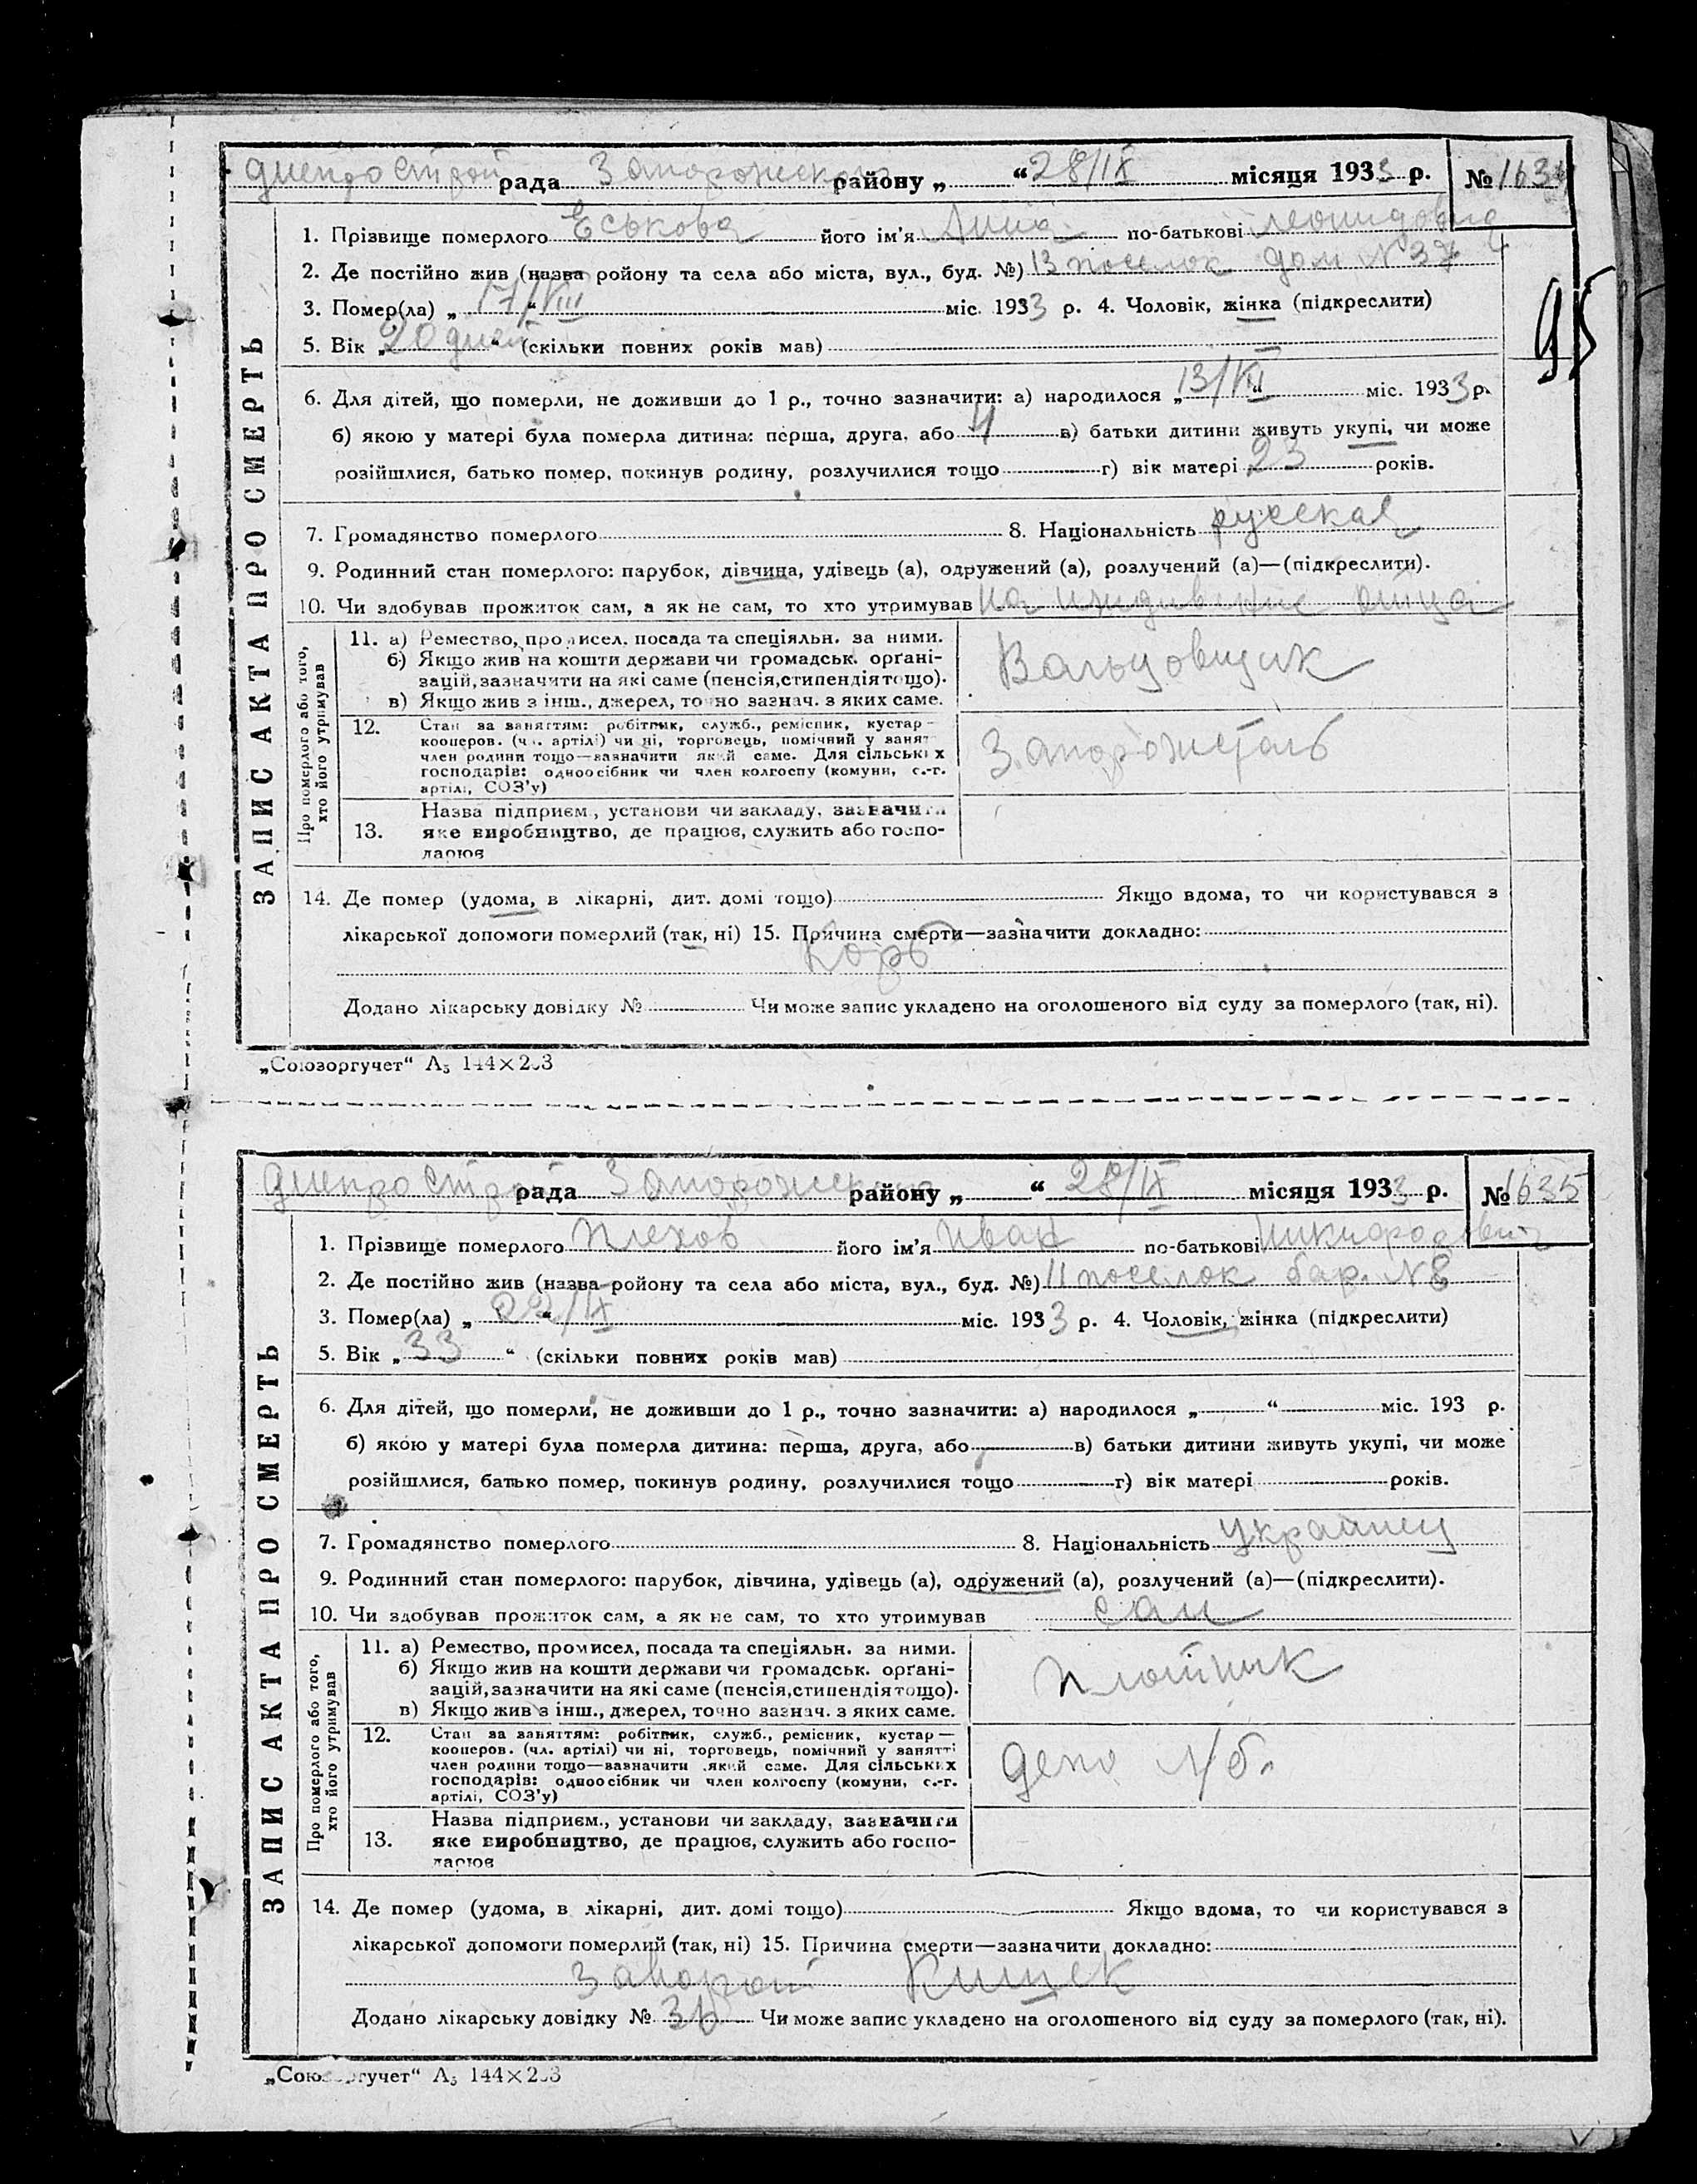 Днепрострой рада Запорожского району „ “ 28/IX місяця 1933 р. № 1634
1. Прізвище померлого Еськова його ім'я Анна по-батькові Леонидовна
2. Де постійно жив (назва ройону та села або міста, вул., буд. №) 13 поселок дом N 37
3. Помер(ла) „ 17/VIII “ міс. 1933 р. 4. Чоловік, жінка (підкреслити)
5. Вік „ 20 дней “ (скільки повних років мав)
95
6. Для дітей, що померли, не доживши до 1 р., точно зазначити: а) народилося „ 13/VII “ міс. 1933 р.
б) якою у матері була померла дитина: перша, друга, або в) батьки дитини живуть укупі, чи може
розійшлися, батько помер, покинув родину, розлучилися тощо г) вік матері 23 років.
7. Громадянство померлого 8. Національність русская
9. Родинний стан померлого: парубок, дівчина, удівець (а), одружений (а), розлучений (а)—(підкреслити).
10. Чи здобував прожиток сам, а як не сам, то хто утримував на иждивение отца
ЗАПИС АКТА ПРО СМЕРТЬ
Про померлого або того, хто його утримував
11. а) Ремество, промисел, посада та спеціяльн. за ними.
б) Якщо жив на кошти держави чи громадськ. орґані-
зацій, зазначити на які саме (пенсія, стипендія тощо).
в) Якщо жив з інш., джерел, точно зазнач. з яких саме.
Вальцовщик
12. Стан за заняттям: робітник, служб., ремісник, кустар—
кооперов. (чл. артілі) чи ні, торговець, помічний у занятті
член родини тощо—зазначити який саме. Для сільських
господарів: одноосібник чи член колгоспу (комуни, с.-г.
артілі, СОЗ'у)
Запорожсталь
Назва підприєм., установи чи закладу, зазначити
13. яке виробництво, де працює, служить або госпо-
дарює
14. Де помер (удома, в лікарні, дит. домі тощо) Якщо вдома, то чи користувався з
лікарської допомоги померлий (так, ні) 15. Причина смерти—зазначити докладно:
Корь
Додано лікарську довідку № Чи може запис укладено на оголошеного від суду за померлого (так, ні).
„Союзоргучет“ А₅ 144×203
Днепрострой рада Запорожского району „ “ 28/IX місяця 1933 р. № 1635
1. Прізвище померлого Плехов його ім'я Иван по-батькові
2. Де постійно жив (назва ройону та села або міста, вул., буд. №) 11 поселок бар. N 8
3. Помер(ла) „ 22/IX “ міс. 1933 р. 4. Чоловік, жінка (підкреслити)
5. Вік „ 33 “ (скільки повних років мав)
6. Для дітей, що померли, не доживши до 1 р., точно зазначити: а) народилося „ “ міс. 193 р.
б) якою у матері була померла дитина: перша, друга, або в) батьки дитини живуть укупі, чи може
розійшлися, батько помер, покинув родину, розлучилися тощо г) вік матері років.
7. Громадянство померлого 8. Національність украинец
9. Родинний стан померлого: парубок, дівчина, удівець (а), одружений (а), розлучений (а)—(підкреслити).
10. Чи здобував прожиток сам, а як не сам, то хто утримував сам
ЗАПИС АКТА ПРО СМЕРТЬ
Про померлого або того, хто його утримував
11. а) Ремество, промисел, посада та спеціяльн. за ними.
б) Якщо жив на кошти держави чи громадськ. орґані-
зацій, зазначити на які саме (пенсія, стипендія тощо).
в) Якщо жив з інш., джерел, точно зазнач. з яких саме.
плотник
12. Стан за заняттям: робітник, служб., ремісник, кустар—
кооперов. (чл. артілі) чи ні, торговець, помічний у занятті
член родини тощо—зазначити який саме. Для сільських
господарів: одноосібник чи член колгоспу (комуни, с.-г.
артілі, СОЗ'у)
депо
Назва підприєм., установи чи закладу, зазначити
13. яке виробництво, де працює, служить або госпо-
дарює
14. Де помер (удома, в лікарні, дит. домі тощо) Якщо вдома, то чи користувався з
лікарської допомоги померлий (так, ні) 15. Причина смерти—зазначити докладно:
заворот кишек
Додано лікарську довідку № 36 Чи може запис укладено на оголошеного від суду за померлого (так, ні).
„Союзоргучет“ А₅ 144×203